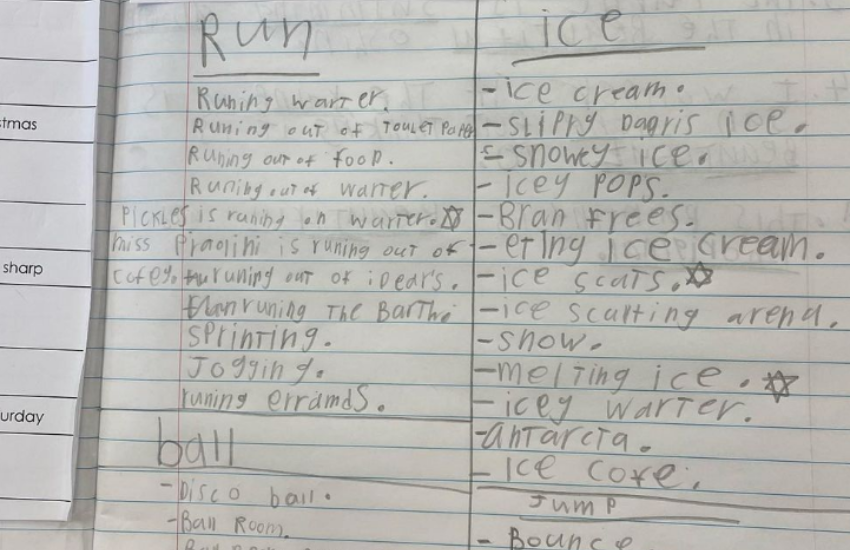 stmas
sharp
urday
Run
Runing warter.
Runing out of Toulet Pater
Runing out of food.
Runing out of warter.
Pickles is runing on warter.
miss Praolini is runing out of
cofey. runing out of idear's.
runing The Barth.
SPrinTing.
Jogging.
runing erramds.
ball
-Disco ball.
-Ball Room.
ice
-ice cream.
-slippry Dagris ice.
-snowey ice.
-icey POPS.
-Bran frees.
-eTing ice cream.
-ice scats.
-ice scatting arena.
-snow.
-melTing ice.
-icey warTer.
-anTarcTa.
-Ice cove.
Jump
-Bounce